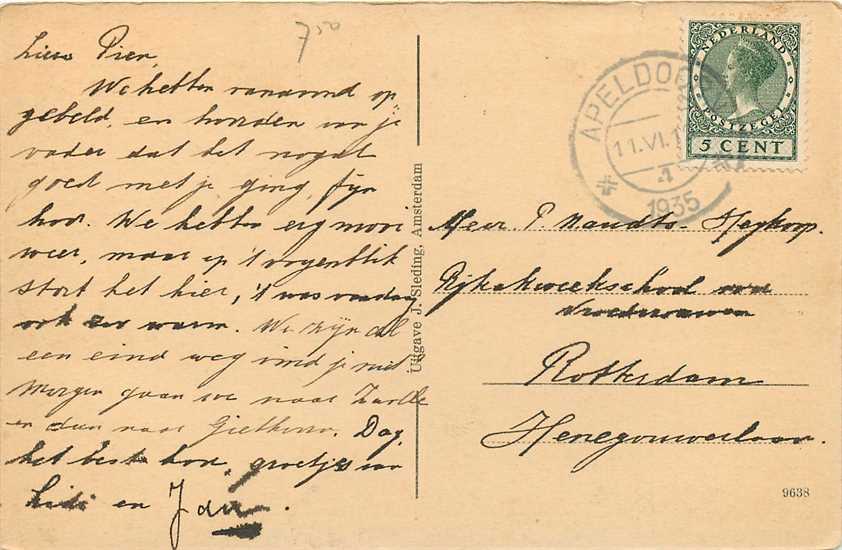 7⁵⁰
Lieve Pier,
We hebben vanavond op
gebeld, en hoorden van je
vader dat het nogal
goed met je ging, fijn
hoor. We hebben erg mooi
weer, maar op 't oogenblik
stort het hier, 't was vandaag
ook zoo warm. We zijn al
een eind weg vind je niet
Morgen gaan we naar Zwolle
en dan naar Giethoorn. Dag,
het beste hoor, groetjes van
en
Uitgave J. Sleding, Amsterdam
NEDERLAND
POSTZEGEL
5 CENT
APELDOORN
11.VI.1
1935
Mevr. P.
Rijkskweekschool voor
Vroedvrouwen
Rotterdam
Henegouwerlaan.
9638